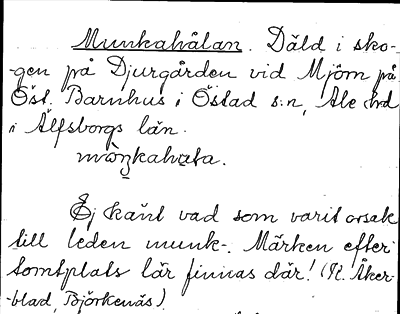 Munkahålan. Däld i sko-
-gen på Djurgården vid Mjörn på
Öst. Barnhus i Östad s:n, Ale hrd
i Älfsborgs län.
Ej känt vad som varit orsak
till leden munk-. Märken efter
tomtplats lär finnas där! (K. Åker-
-blad, Björkenäs).